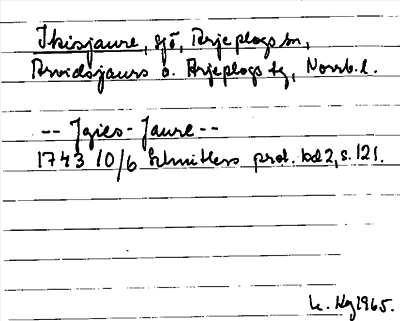 Ikisjaure, sjö, Arjeplogs sn,
Arvidsjaurs o. Arjeplogs tg, Norrb.l.
-- Jgies-Jaure --
1743 10/6 Schnitlers prot. bd 2, s. 121.
1965.